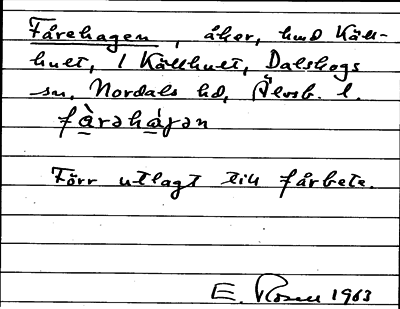 Fårehagen, åker, hmd Käll-
huet, 1 Källhuet, Dalskogs
sn, Nordals hd, Älvsb. l.
fàrəháɣən
Förr utlagt till fårbete.
E. Rosell 1963